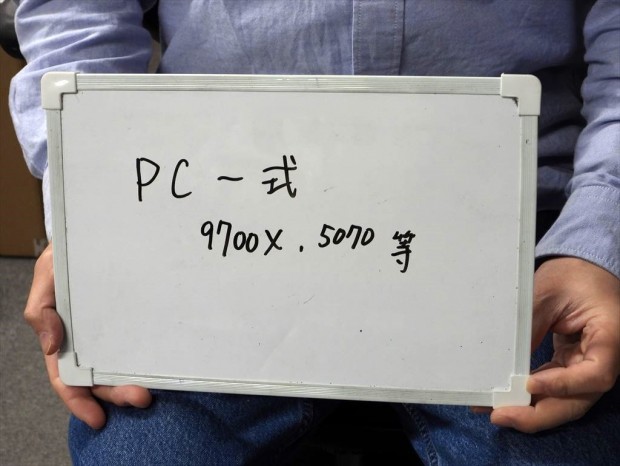 PC一式
9700X. 5070 等